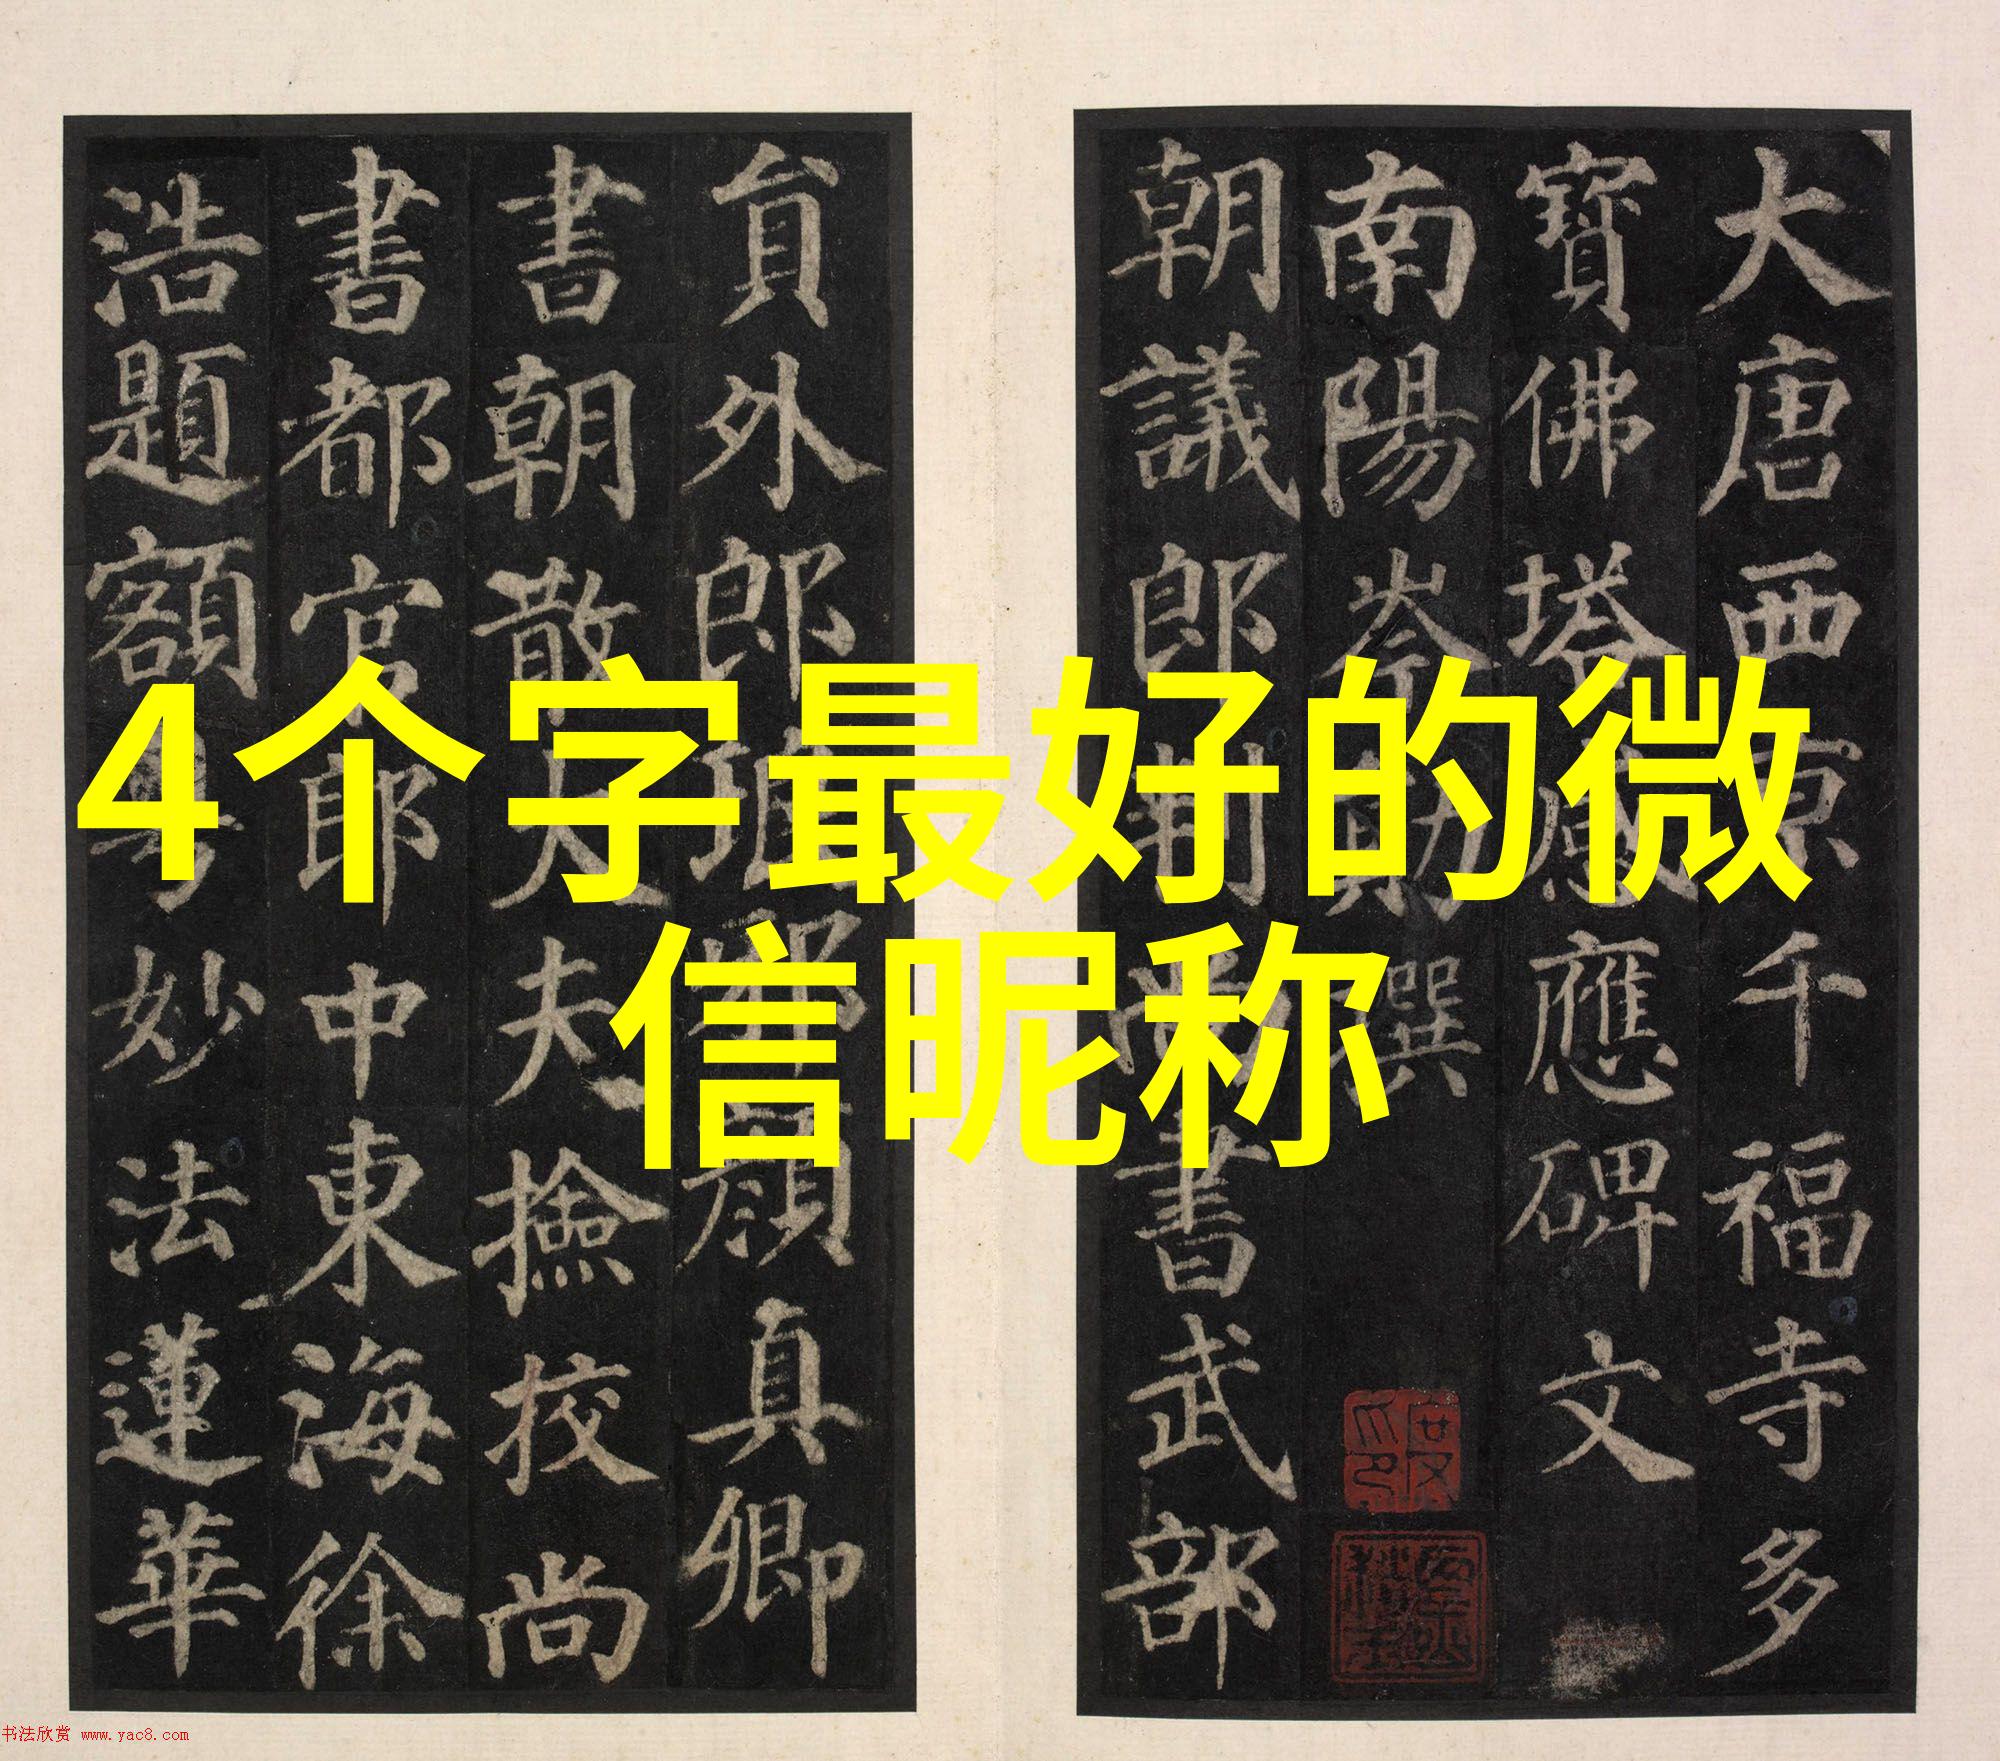 4个字最好的微
信昵称
大唐西京千福寺多
寶佛塔感應碑文
南陽岑勛撰
朝議郎判尚書武部
貟外郎琅邪顏真卿
書朝散大夫撿挍尚
書都官郎中東海徐
浩題額粤妙法蓮華
书法欣赏 www.yac8.com